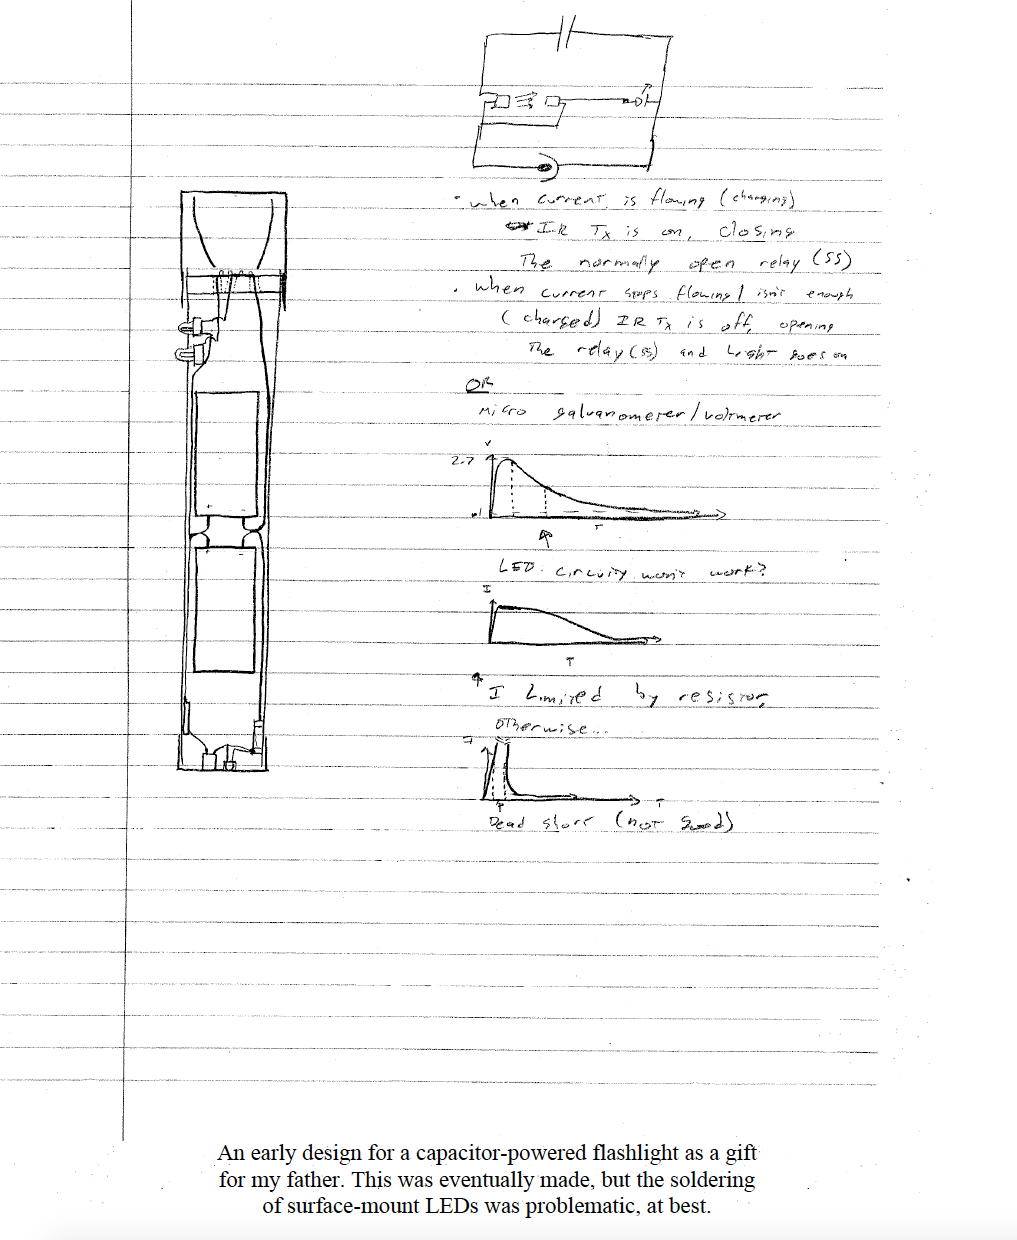 · when current is flowing (charging)
IR Tx is on, closing
The normally open relay (SS)
· when current stops flowing / isn't enough
(charged) IR Tx is off, opening
The relay (SS) and Light goes on
OR
Micro galvanometer/voltmeter
V
2.7
.1
T
LED circuity won't work?
I
T
I Limited by resistor,
OTherwise...
I
T
Dead short (not good)
An early design for a capacitor-powered flashlight as a gift
for my father. This was eventually made, but the soldering
of surface-mount LEDs was problematic, at best.